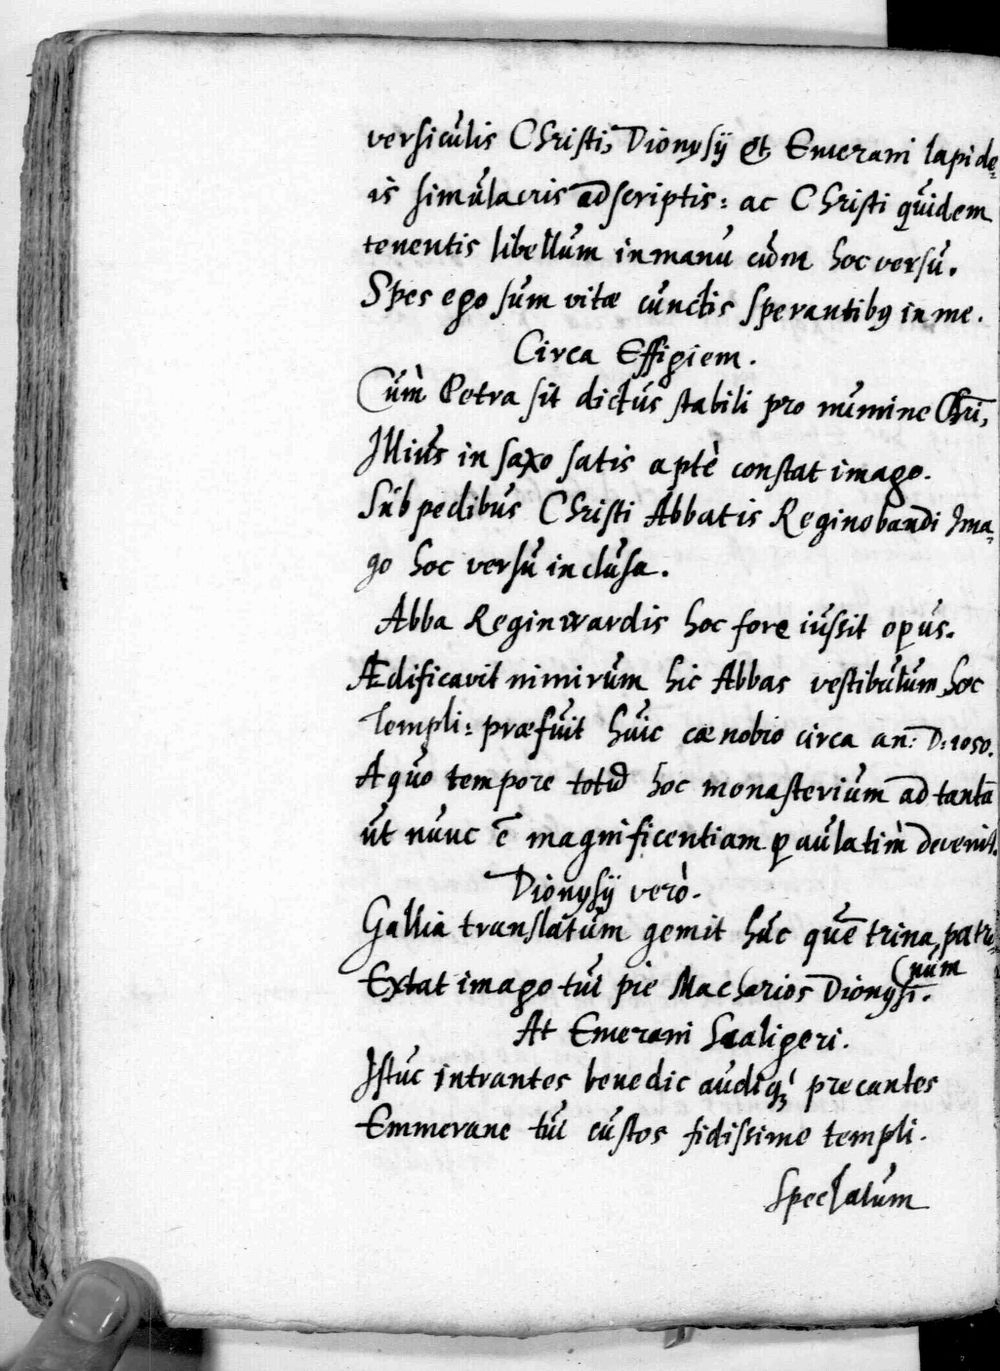 versiculis Christi, Dionysij et Emerani lapide=
is simulacris adscriptis: ac Christi quidem
tenentis libellum in manu cum hoc versu.
Spes ego sum vitæ cunctis sperantibꝰ in me.
Circa Effigiem.
Cùm Petra sit dictus stabili pro numine Chr̄i,
Illius in saxo satis aptè constat imago.
Sub pedibus Christi Abbatis Reginobandi Ima=
go hoc versu inclusa.
Abba Reginwardis hoc fore iussit opus.
Ædificavit nimirum hic Abbas vestibulum hoc
Templi: præfuit huic cænobio circa an: D: 1050.
A quo tempore totū hoc monasterium ad tantā
ut nunc ē magnificentiam paulatim devenit.
Dionysij verò.
Gallia translatum gemit hùc quē trina, patro=
(num
Extat imago tui pie Macharios Dionysi.
At Emerani Scaligeri.
Istuc intrantes benedic audiqꝫ precantes
Emmerane tui custos fidissime templi.
Spectatum